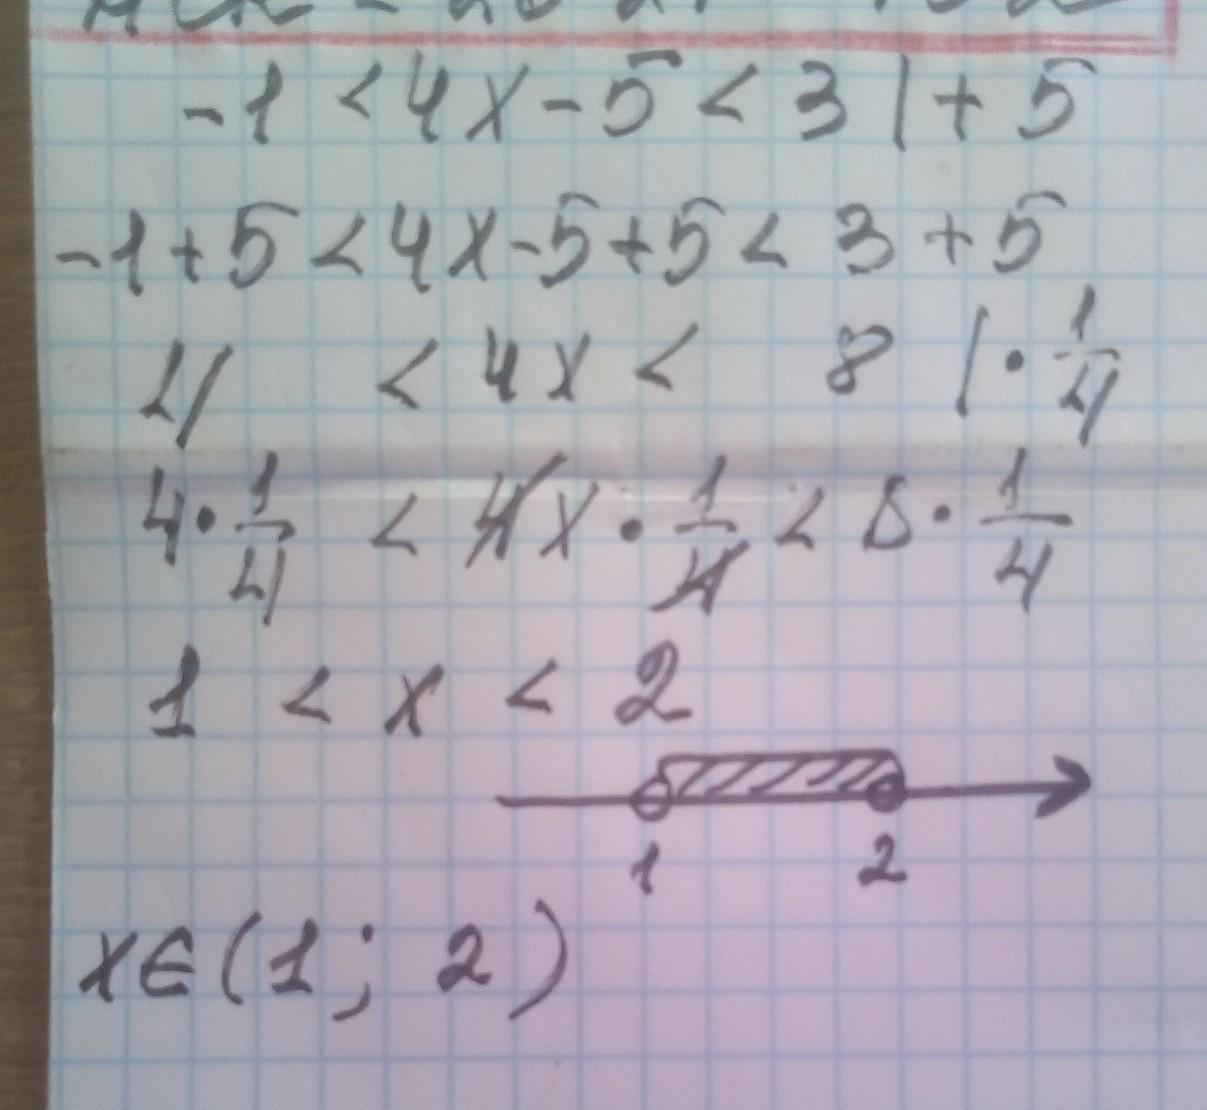 -1 < 4x - 5 < 3 | + 5
-1 + 5 < 4x - 5 + 5 < 3 + 5
4 < 4x < 8 | · 1/4
4 · 1/4 < 4x · 1/4 < 8 · 1/4
1 < x < 2
1 2
x∈(1; 2)